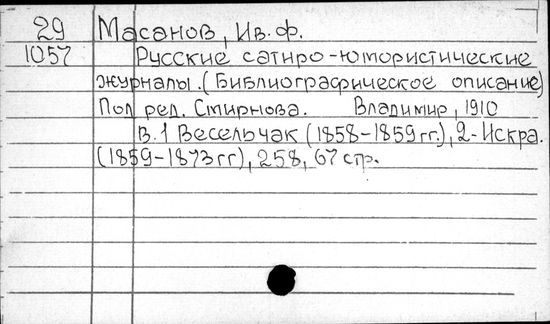 29 Масанов, Ив. Ф.
1057 Русские сатиро-юмористические
журналы. (Библиографическое описание)
Под ред. Смирнова. Владимир, 1910
В.1 Весельчак (1858-1859 гг), 2-Искра.
(1859-1873 гг), 258, 67 стр.